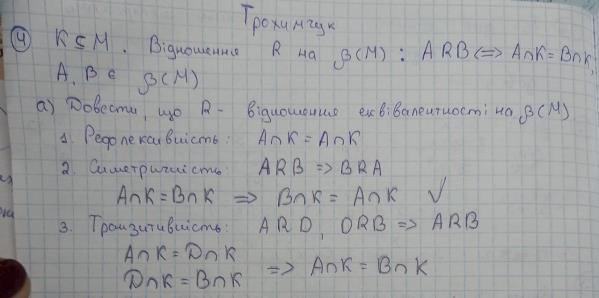 Трохимчук
④ K ⊆ M. Відношення R на β(M) : ARB <=> A∩K = B∩K,
A, B ∈ β(M)
а) Довести, що R - відношення еквівалентності на β(M)
1. Рефлексивність: A∩K = A∩K
2. Симетричність: ARB => BRA
A∩K = B∩K => B∩K = A∩K ✓
3. Транзитивність: ARD, DRB => ARB
A∩K = D∩K
D∩K = B∩K => A∩K = B∩K